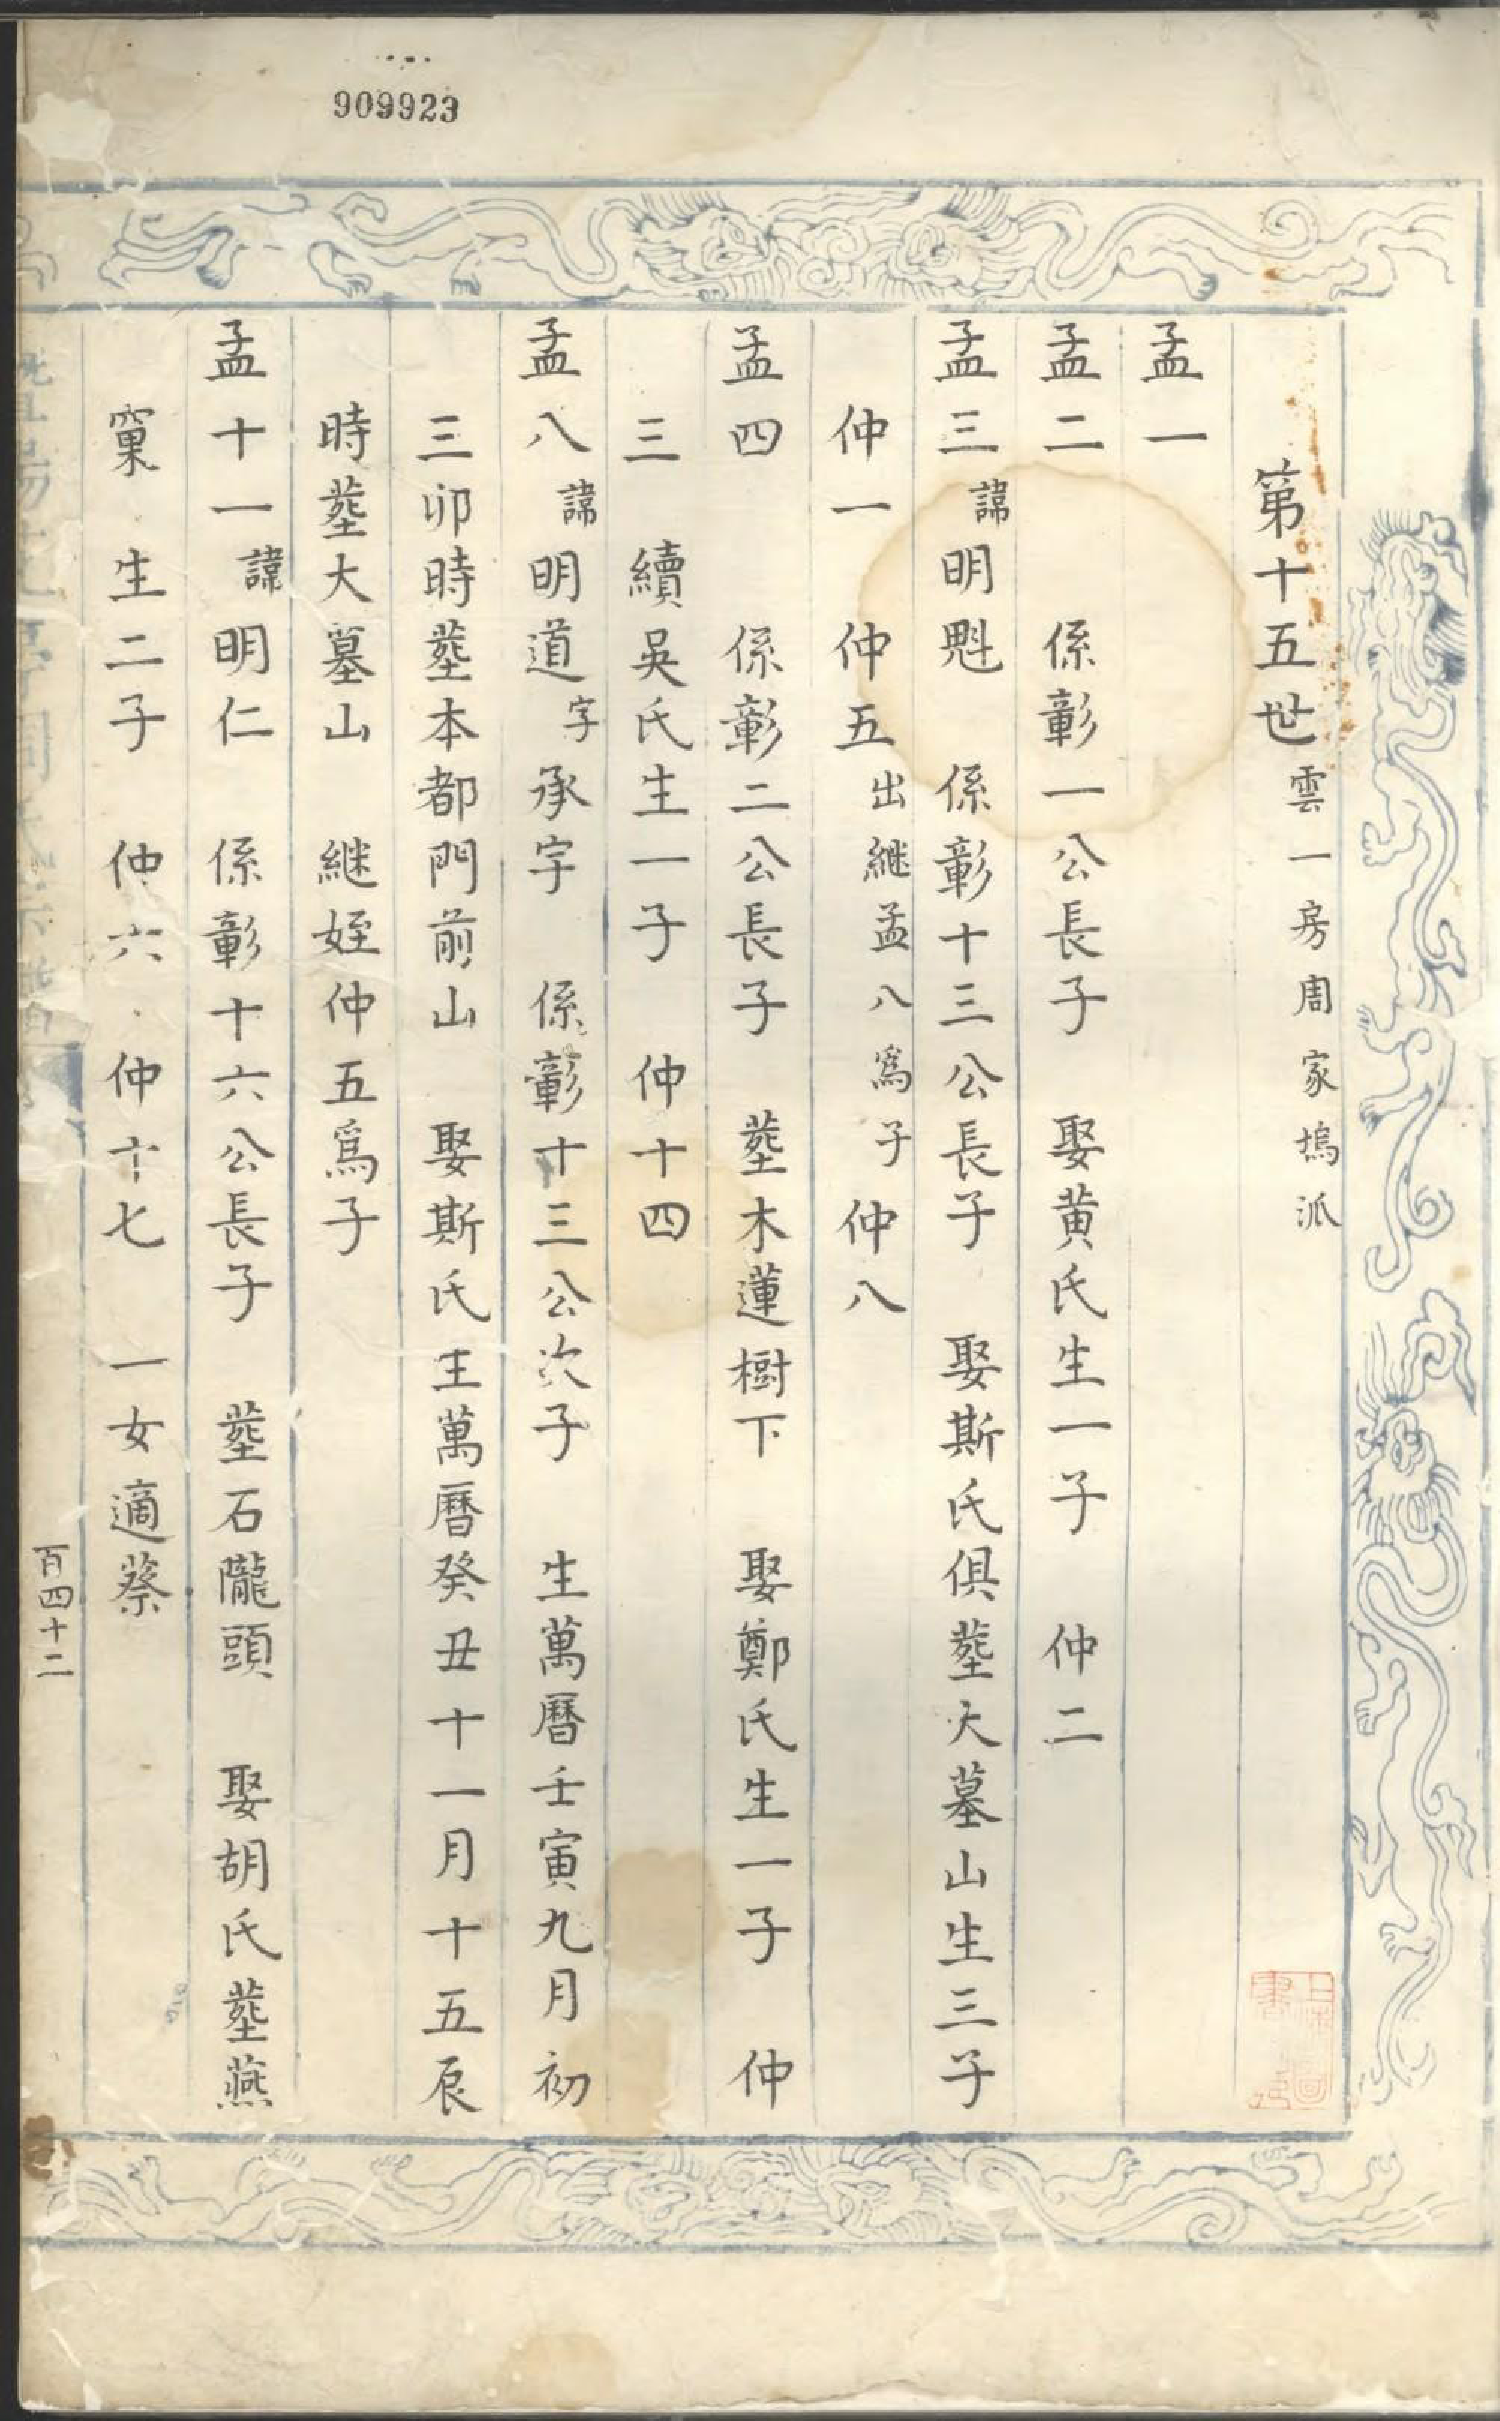 909923
第十五世雲一房周家塢派
孟一
孟二 係彰一公長子 娶黄氏生一子 仲二
孟三諱明魁 係彰十三公長子 娶斯氏俱塟大墓山生三子
仲一 仲五出継孟八為子 仲八
孟四 係彰二公長子 塟木蓮樹下 娶鄭氏生一子 仲
三 續吳氏生一子 仲十四
孟八諱明道字承宇 係彰十三公次子 生萬曆壬寅九月初
三卯時塟本都門前山 娶斯氏王萬曆癸丑十一月十五辰
時塟大墓山 継姪仲五爲子
孟十一諱明仁 係彰十六公長子 塟石隴頭 娶胡氏塟燕
窠 生二子 仲六 仲十七 一女適蔡
百四十二